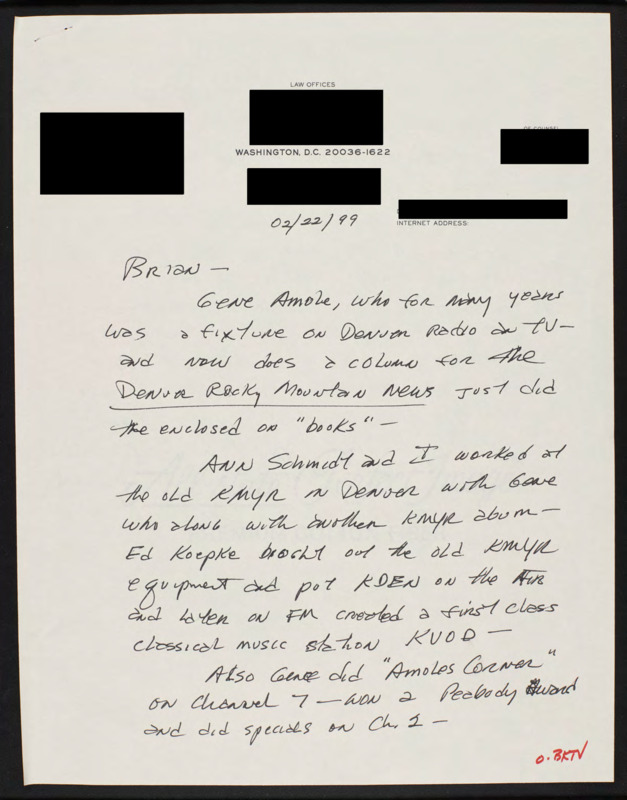 LAW OFFICES
WASHINGTON, D.C. 20036-1622
OF COUNSEL
INTERNET ADDRESS:
02/22/99
Brian —
Gene Amole, who for many years
was a fixture on Denver Radio an TV —
and now does a column for the
Denver Rocky Mountain News just did
the enclosed on "books" —
Ann Schmidt and I worked at
the old KMYR in Denver with Gene
who along with another KMYR alum —
Ed Koepke bought out the old KMYR
equipment and put KDEN on the Air
and later on FM created a first class
classical music station KVOD —
Also Gene did "Amoles Corner"
on Channel 7 — won a Peabody Award
and did specials on Ch. 2 —
O-BKTV